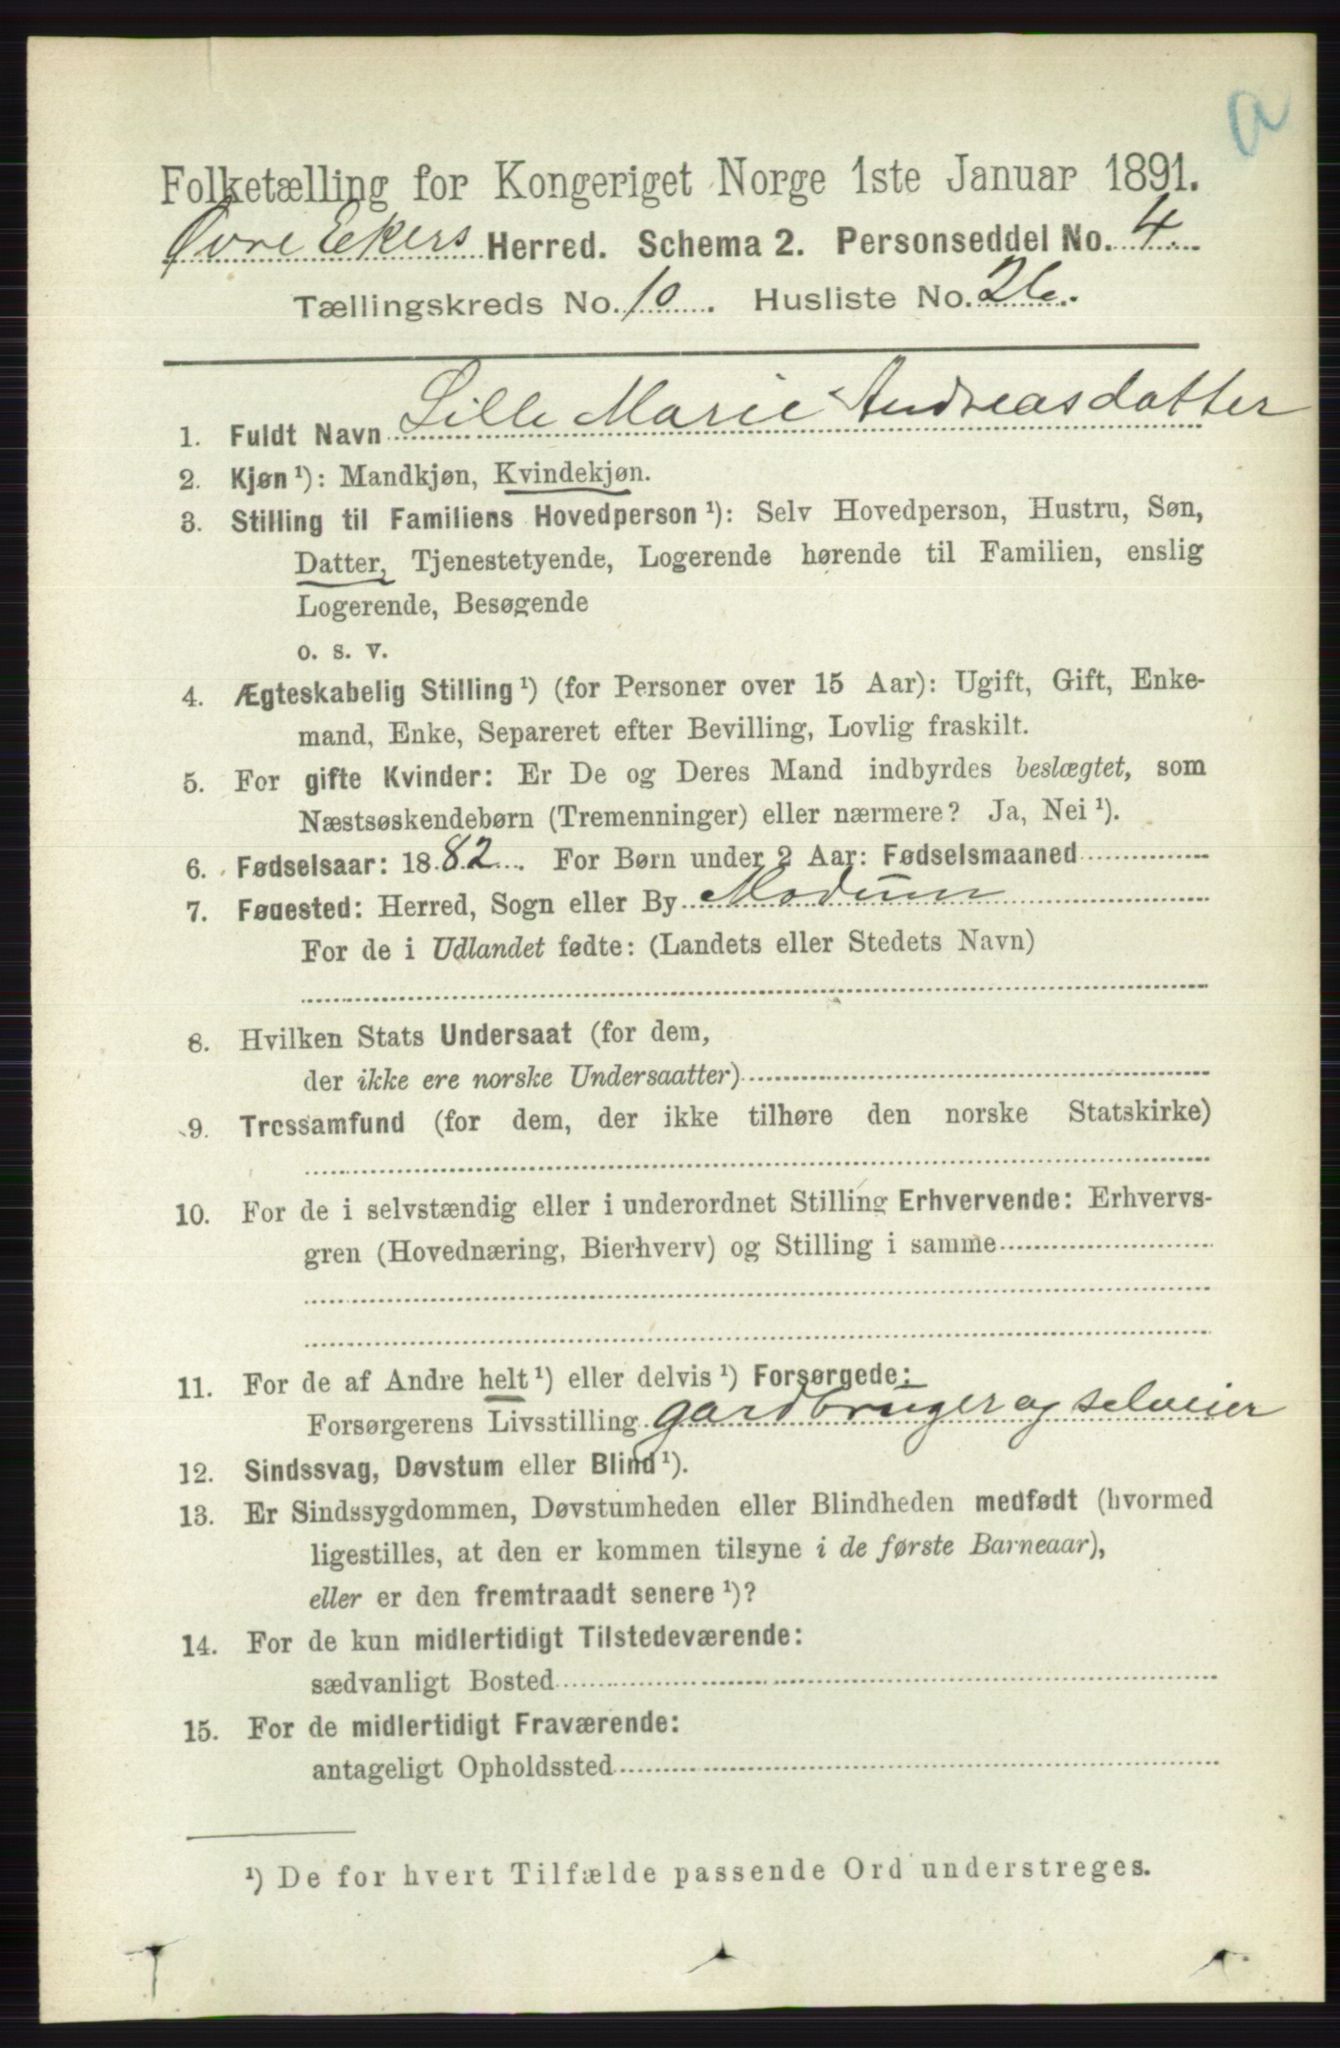 a
Folketælling for Kongeriget Norge 1ste Januar 1891.
Øvre Ekers Herred. Schema 2. Personseddel No. 4.
Tællingskreds No. 10. Husliste No. 26.
1. Fuldt Navn Lille Marie Andreasdatter
2. Kjøn ¹): Mandkjøn, Kvindekjøn.
3. Stilling til Familiens Hovedperson ¹): Selv Hovedperson, Hustru, Søn,
Datter, Tjenestetyende, Logerende hørende til Familien, enslig
Logerende, Besøgende
o. s. v.
4. Ægteskabelig Stilling ¹) (for Personer over 15 Aar): Ugift, Gift, Enke-
mand, Enke, Separeret efter Bevilling, Lovlig fraskilt.
5. For gifte Kvinder: Er De og Deres Mand indbyrdes beslægtet, som
Næstsøskendebørn (Tremenninger) eller nærmere? Ja, Nei ¹).
6. Fødselsaar: 1882. For Børn under 2 Aar: Fødselsmaaned
7. Føduested: Herred, Sogn eller By Modum
For de i Udlandet fødte: (Landets eller Stedets Navn)
8. Hvilken Stats Undersaat (for dem,
der ikke ere norske Undersaatter)
9. Trossamfund (for dem, der ikke tilhøre den norske Statskirke)
10. For de i selvstændig eller i underordnet Stilling Erhvervende: Erhvervs-
gren (Hovednæring, Bierhverv) og Stilling i samme
11. For de af Andre helt ¹) eller delvis ¹) Forsørgede:
Forsørgerens Livsstilling gardbruger og selveier
12. Sindssvag, Døvstum eller Blind ¹).
13. Er Sindssygdommen, Døvstumheden eller Blindheden medfødt (hvormed
ligestilles, at den er kommen tilsyne i de første Barneaar),
eller er den fremtraadt senere ¹)?
14. For de kun midlertidigt Tilstedeværende:
sædvanligt Bosted
15. For de midlertidigt Fraværende:
antageligt Opholdssted
¹) De for hvert Tilfælde passende Ord understreges.